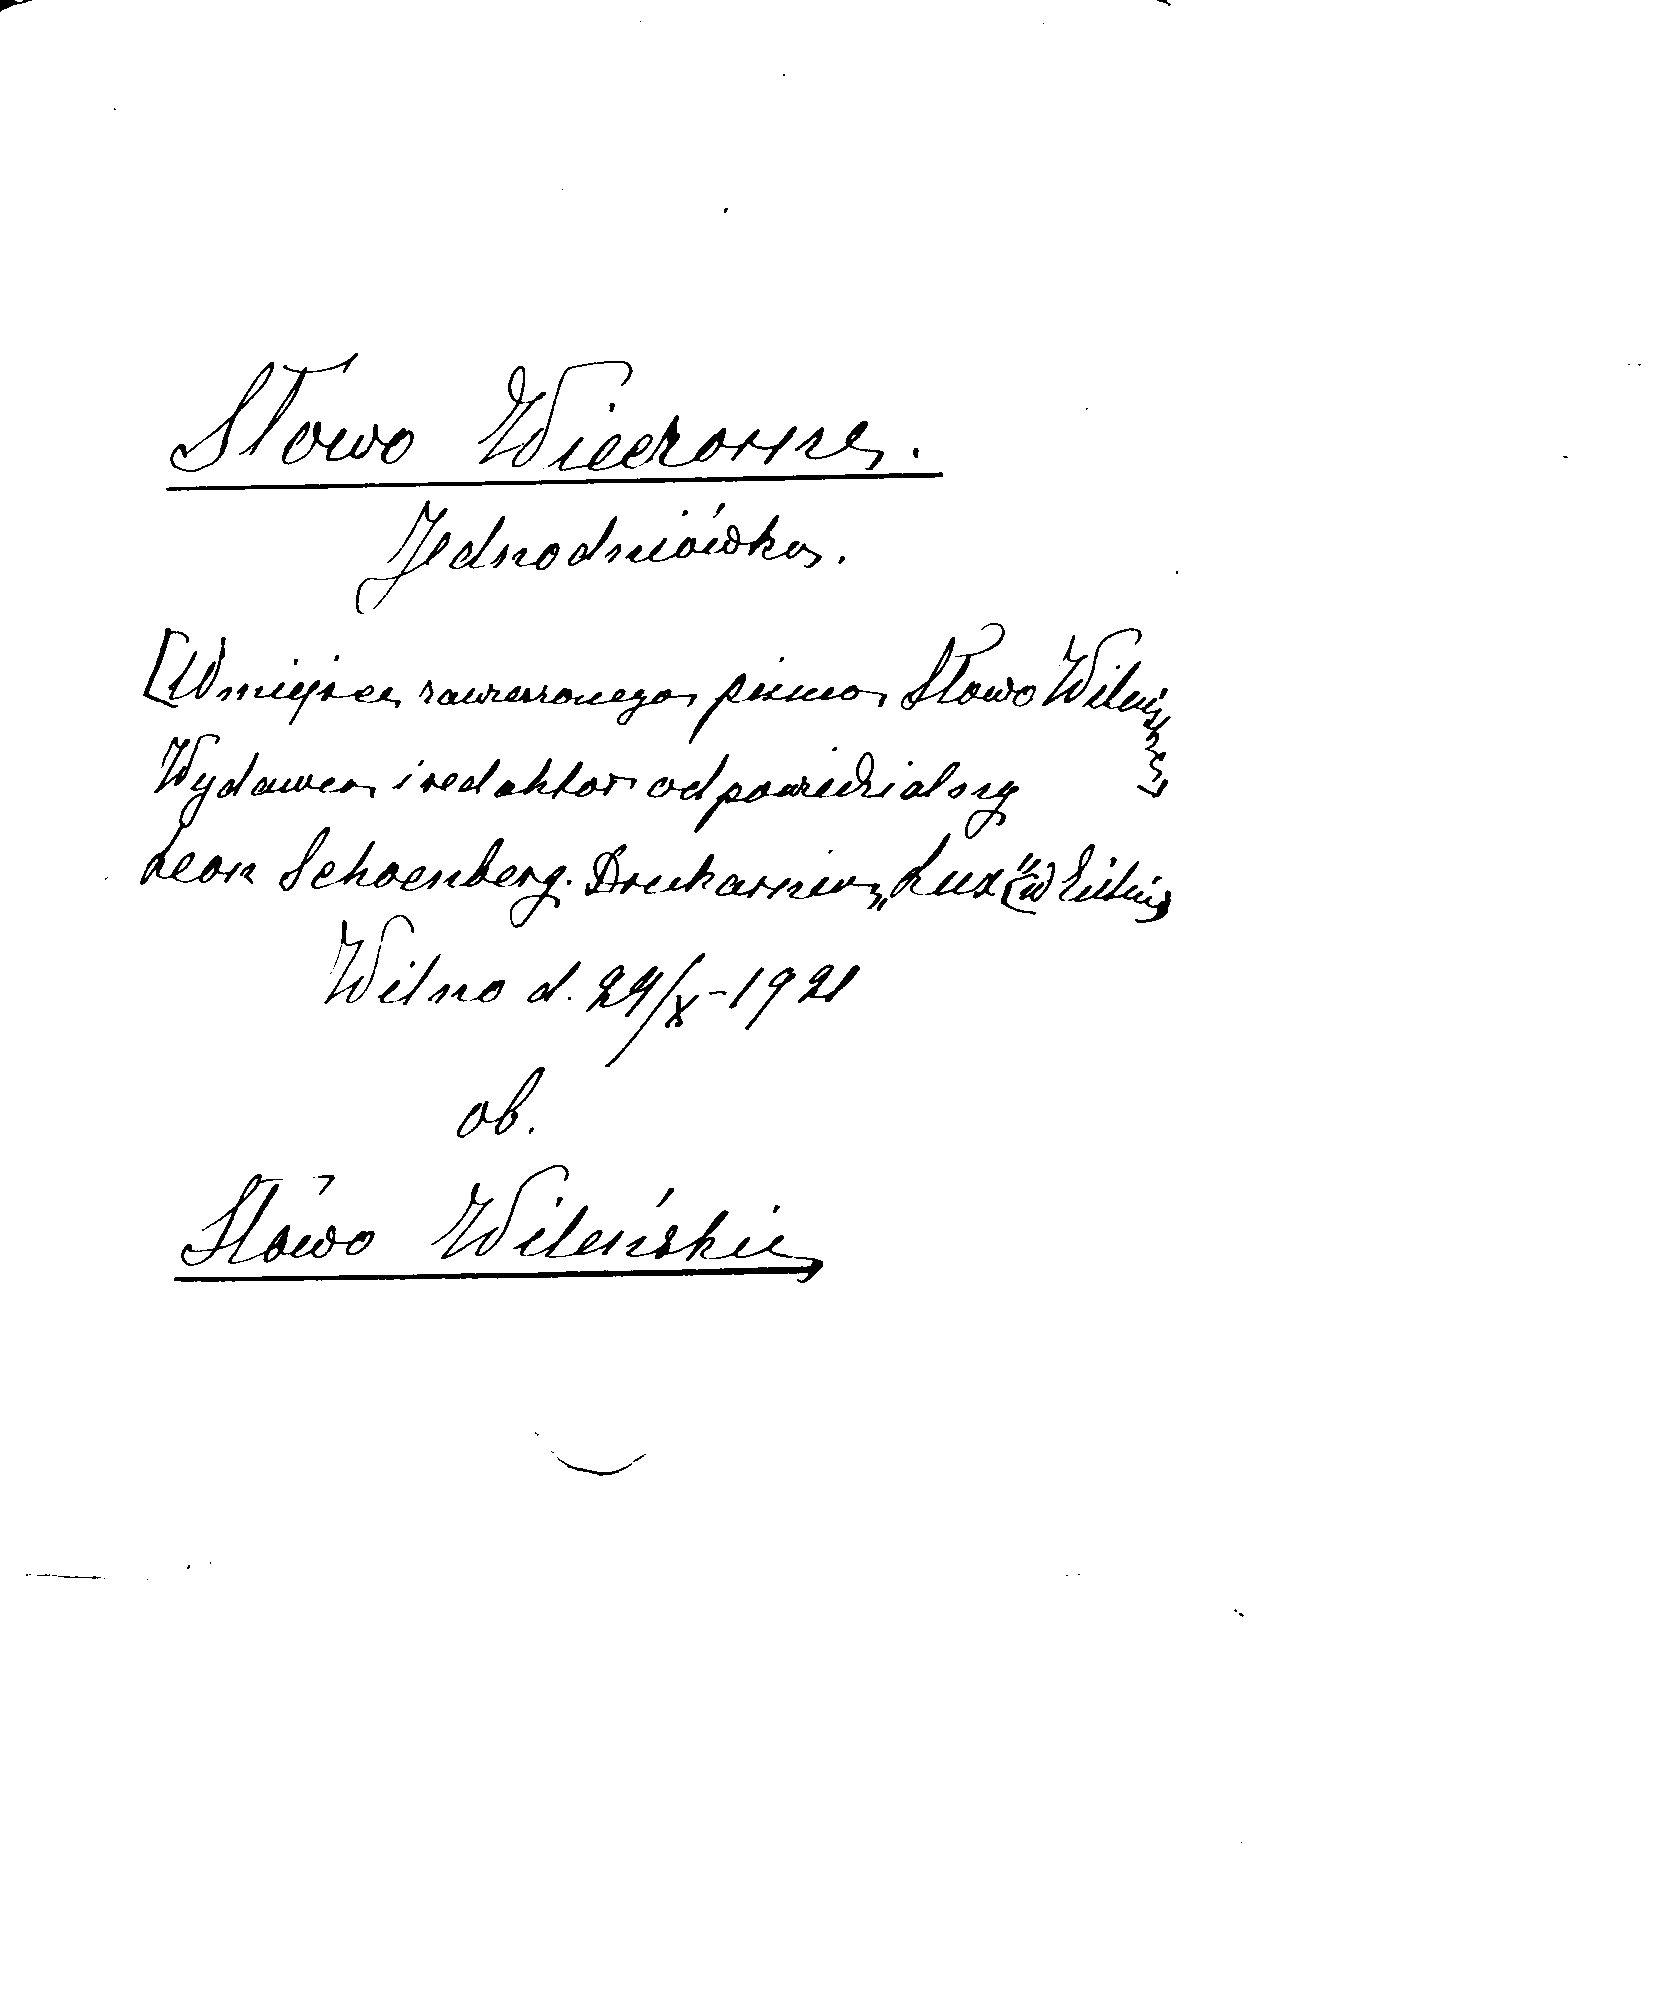 Słowo Wieczorne.
Jednodniówka.
[W miejsce zawieszonego pisma Słowo Wileńskie]
Wydawca i redaktor odpowiedzialny
Leon Schoenberg. Drukarnia „Lux" (W Wilnie)
Wilno d. 24/X-1921
ob.
Słowo Wileńskie